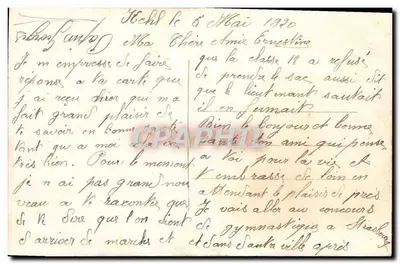 Kehl le 6 Mai 1920
Ma Chère Amie Ernestine
Je m empresse de faire
réponse a ta carte que
j ai reçu hier qui m a
fait grand plaisir de
te savoir en bonne
tant qu a moi
très bien. Pour le moment
je n ai pas grand nou
veau a te raconter que
de te dire que l on vient
d arriver de marche et
que la classe 18 a refusé
de prendre le sac aussi
que le lieutenant sautait
il en fumait
Bien le bonjour et bonne
ton ami qui pense
a toi pour la vie et
t embrasse de loin en
attendant le plaisir de près
Je vais aller au concours
de gymnastique a Strasbourg
dans cette ville après